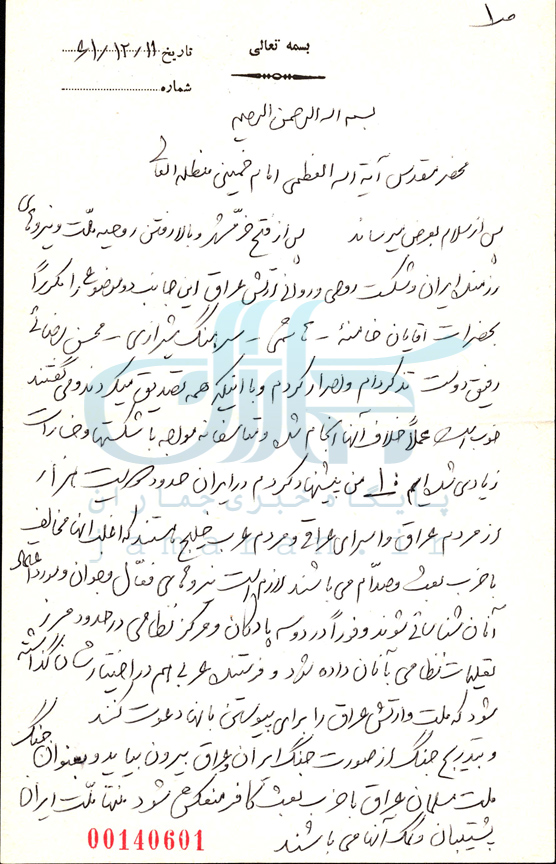 ص ۱
بسمه تعالی
تاریخ ۶۱/۱۲/۱۱
شماره
بسم الله الرحمن الرحیم
محضر مقدس آیة الله العظمی امام خمینی مدظله العالی
پس از سلام بعرض میرساند پس از فتح خرمشهر و بالا رفتن روحیه ملت و نیروهای
رزمنده ایران و شکست روحی و روانی ارتش عراق این جانب دو موضوع را مکررا
بحضرات آقایان خامنه‌ای - هاشمی - سرهنگ شیرازی - محسن رضائی
رفیق دوست تذکر دادم و اصرار کردم و با اینکه همه تصدیق میکردند و می گفتند
خوب است عملاً خلاف آنها انجام شد و متأسفانه مواجه با شکستها و خسارات
زیادی شده ایم ۱۰ من پیشنهاد کردم در ایران حدود دویست هزار
از مردم عراق و اسرای عراقی و مردم عرب خلیج هستند که اغلب آنها مخالف
با حزب بعث و صدام می باشند لازم است نیروهای فعال و جوان و مورد اعتماد
آنان شناسائی شوند و فوراً در دو سه پادگان و مرکز نظامی در حدود مرز
تعلیمات نظامی بآنان داده شود و فرستنده عربی هم در اختیارشان گذاشته
شود که ملت و ارتش عراق را برای پیوستن بآنها دعوت کنند
و بتدریج جنگ از صورت جنگ ایران و عراق بیرون بیاید و بعنوان جنگ
ملت مسلمان عراق با حزب بعث کافر منعکس می شود منتها ملت ایران
پشتیبان و کمک آنها می باشند
00140601
جماران
پایگاه خبری جماران
jamaran.ir